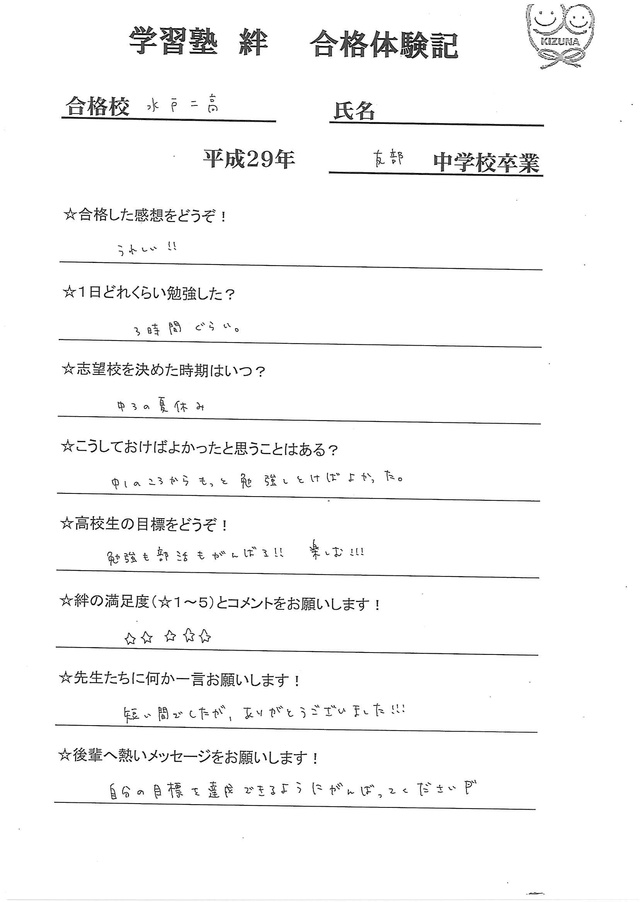 学習塾 絆 合格体験記
KIZUNA
合格校 水戸二高 氏名
平成29年 友部 中学校卒業
☆合格した感想をどうぞ!
うれしい!!
☆1日どれくらい勉強した?
3時間ぐらい。
☆志望校を決めた時期はいつ?
中3の夏休み
☆こうしておけばよかったと思うことはある?
中1のころからもっと勉強しとけばよかった。
☆高校生の目標をどうぞ!
勉強も部活もがんばる!! 楽しむ!!!
☆絆の満足度(☆1~5)とコメントをお願いします!
☆☆☆☆☆
☆先生たちに何か一言お願いします!
短い間でしたが、ありがとうございました!!!
☆後輩へ熱いメッセージをお願いします!
自分の目標を達成できるようにがんばってください